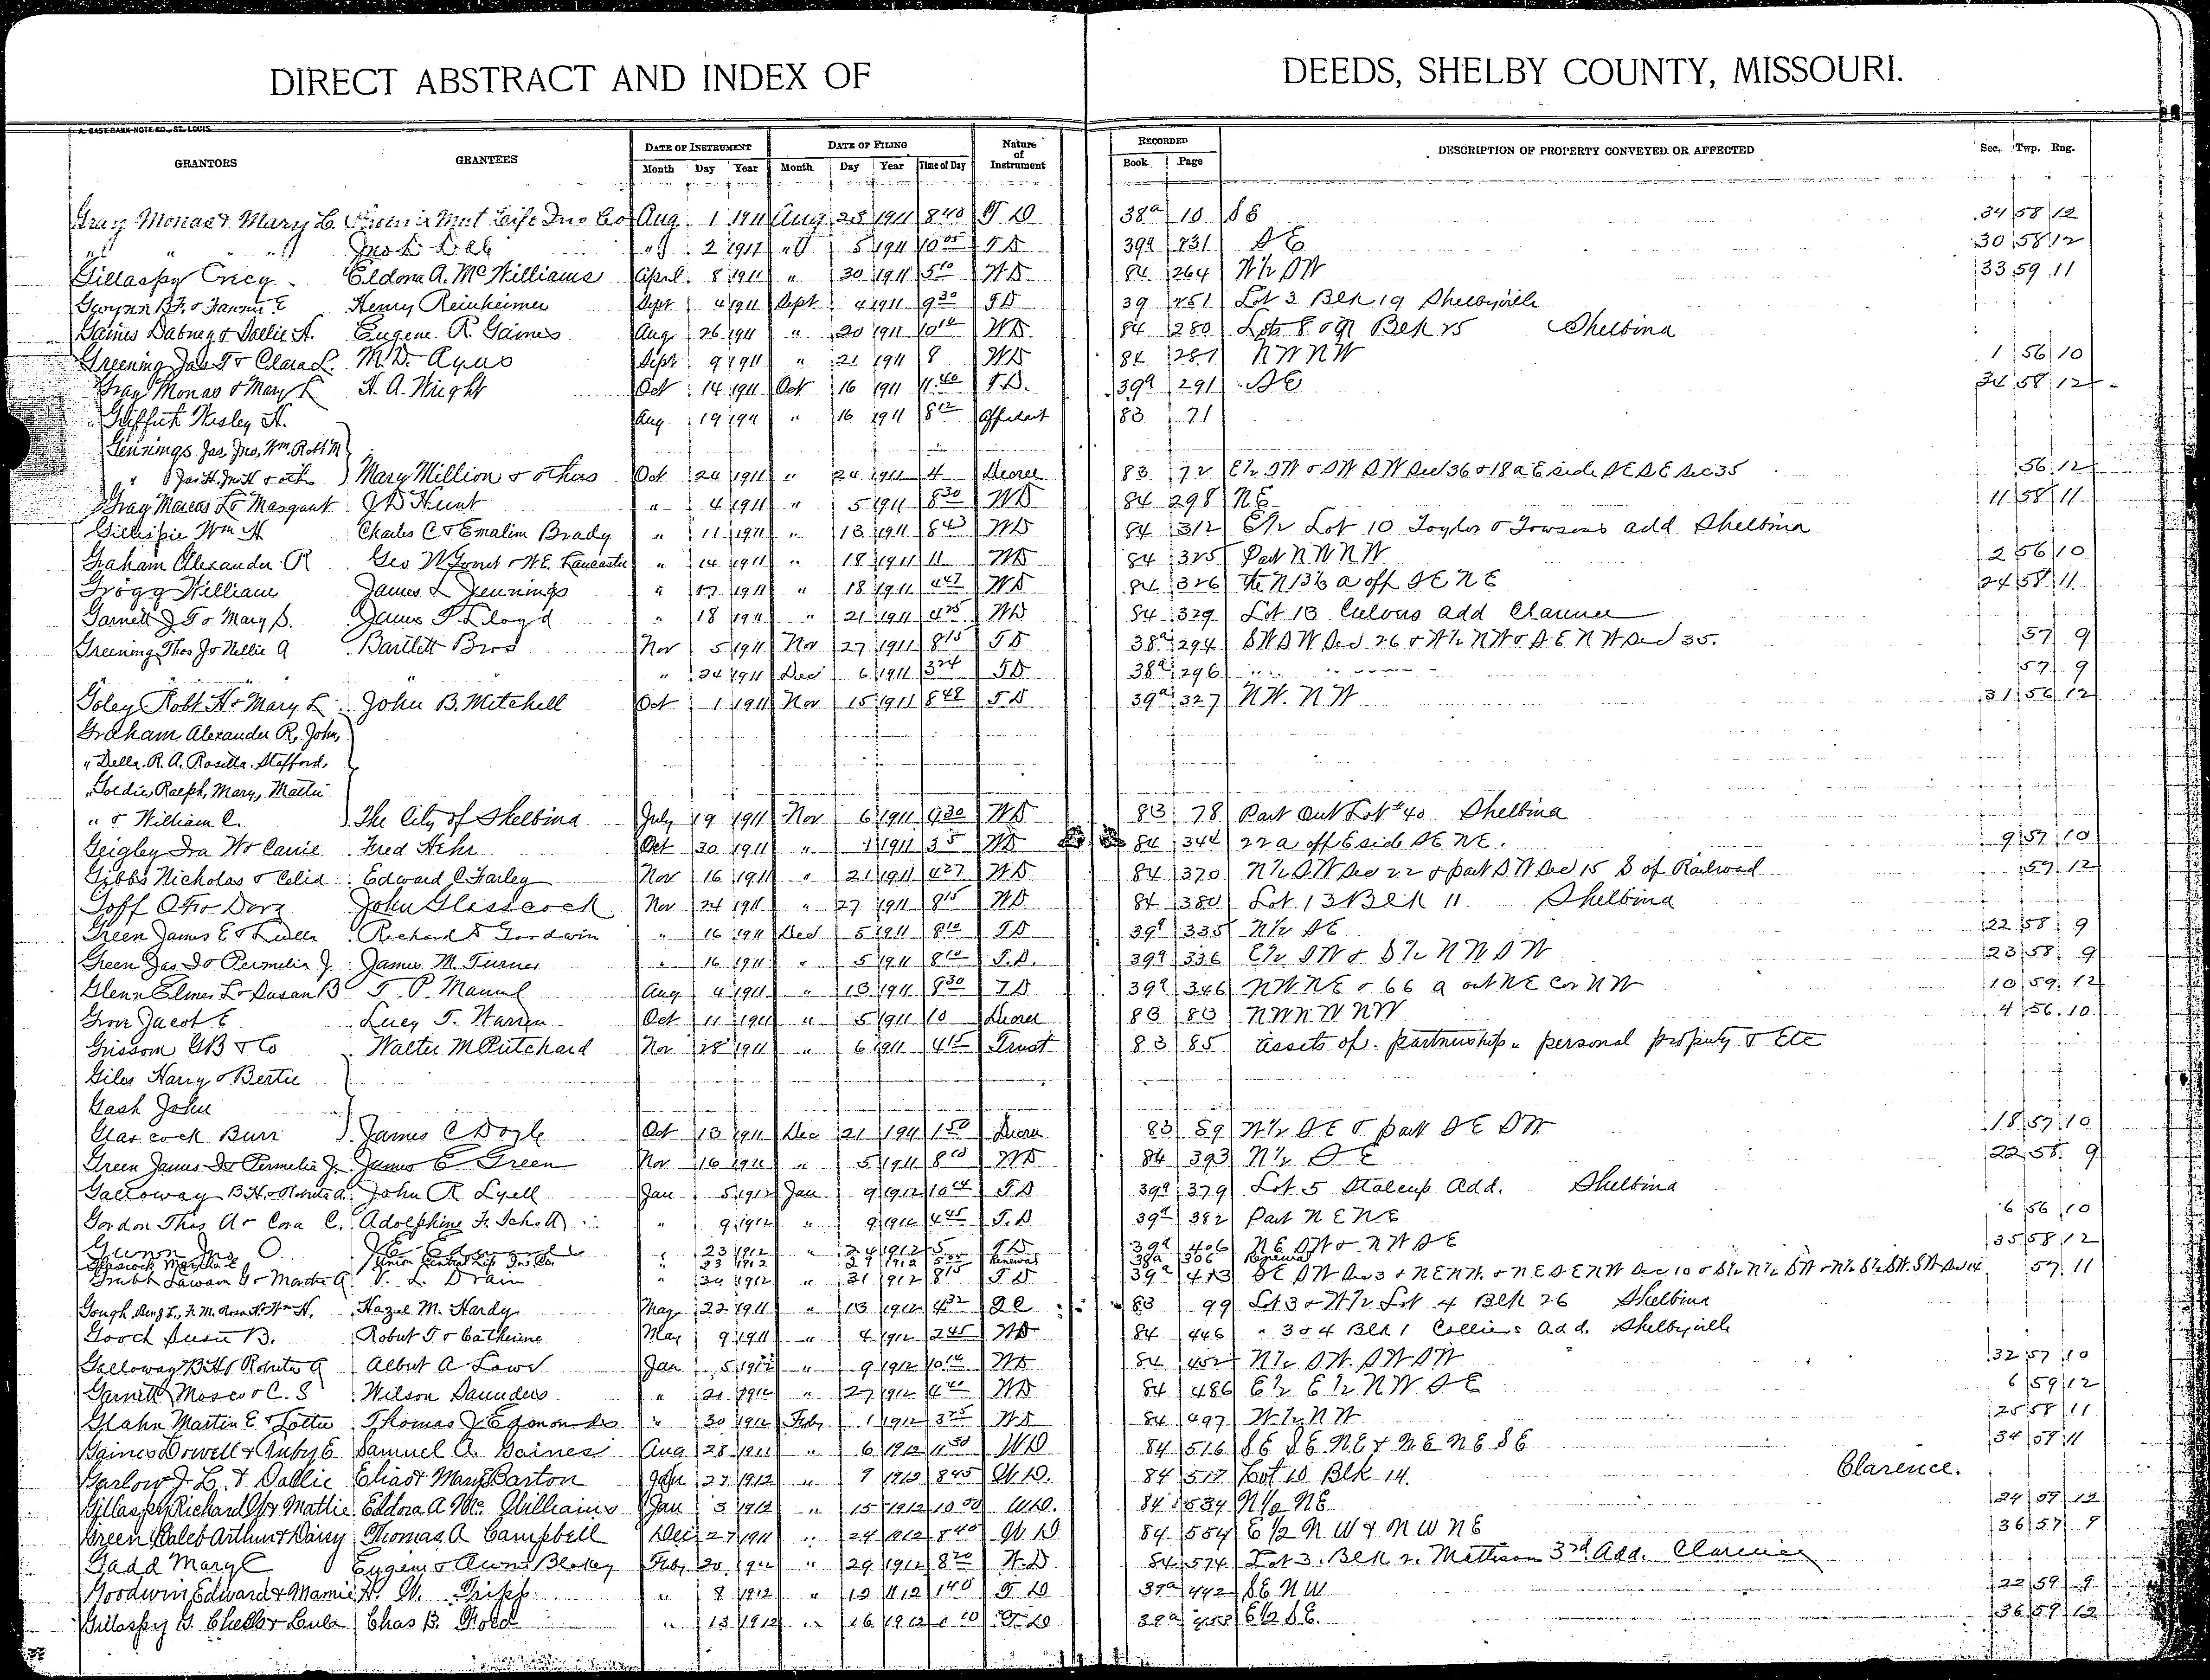 DIRECT ABSTRACT AND INDEX OF DEEDS, SHELBY COUNTY, MISSOURI.
A. GAST BANK NOTE CO., ST. LOUIS.
GRANTORS GRANTEES DATE OF INSTRUMENT DATE OF FILING Nature of Instrument RECORDED DESCRIPTION OF PROPERTY CONVEYED OR AFFECTED Sec. Twp. Rng.
Month Day Year Month Day Year Time of Day Book Page
Gray Monas & Mary L. Mut Life Ins Co Aug 1 1911 Aug 25 1911 8 40 T D 38a 10 S E 34 58 12
" " " Jno L " 2 1911 " 5 1911 10 05 T D 39a 231 S E 30 58 12
Gillaspy Crecy Eldora A. McWilliams April 8 1911 " 30 1911 5 10 W D 84 264 W ½ S W 33 59 11
Gwynn B F. & Fannie E Henry Reinheimer Sept 4 1911 Sept 4 1911 9 30 T D 39 251 Lot 3 Blk 19 Shelbyville
Gaines Dabney & Sallie H. Eugene R. Gaines Aug 26 1911 " 20 1911 10 10 W D 84 280 Lots 8 & 9 Blk 25 Shelbina
Greening Jas T & Clara L. M. D. Ayres Sept 9 1911 " 21 1911 8 W D 84 281 N W N W 1 56 10
Gray Monas & Mary L H. A. Wright Oct 14 1911 Oct 16 1911 11 40 T. D. 39a 291 S E 34 58 12
Griffith Wesley H. Aug 19 1911 " 16 1911 8 12 Affidavit 83 71
Jennings Jas, Jno, Wm, Robt M
" Jas H, & oth Mary Million & others Oct 24 1911 " 24 1911 4 Decree 83 72 E ½ S W & S W S W Sec 36 & 18 a E side S E S E Sec 35 56 12
Gray Marcus L & Margaret J D Hunt " 4 1911 " 5 1911 8 30 W D 84 298 N E 11 58 11
Gillispie Wm H Charles C & Emaline Brady " 11 1911 " 13 1911 8 43 W D 84 312 E ½ Lot 10 Taylor & Towsons add Shelbina
Graham Alexander R Geo W & W. E. Lancaster " 14 1911 " 18 1911 11 W D 84 325 Part N W N W 2 56 10
Grogg William James L Jennings " 17 1911 " 18 1911 4 47 W D 84 326 the N 13⅓ a off S E N E 24 58 11
Garnett J T & Mary S. James T. Lloyd " 18 1911 " 21 1911 4 25 W D 84 329 Lot 13 Culvers add Clarence
Greening Thos J & Nellie A Bartlett Bros Nov 5 1911 Nov 27 1911 8 15 T D 38a 294 S W S W Sec 26 & W ½ N W & S E N W Sec 35. 57 9
" 24 1911 Dec 6 1911 3 24 T D 38a 296 " " 57 9
Goley Robt H & Mary L John B. Mitchell Oct 1 1911 Nov 15 1911 8 48 T D 39a 327 N W. N W 31 56 12
Graham Alexander R, John,
" Della. R. A. Rosilla. Stafford,
" Goldie, Ralph, Mary, Mattie
" & William C. The City of Shelbina July 19 1911 Nov 6 1911 9 30 W D 83 78 Part Out Lot #40 Shelbina
Geigley Ira W & Carrie Fred Hehr Oct 30 1911 " 1 1911 3 5 W D 84 344 22 a off E side S E N E. 9 57 10
Gibbs Nicholas & Celia Edward C Farley Nov 16 1911 " 21 1911 4 27 W D 84 370 N ½ S W Sec 22 & part S W Sec 15 S of Railroad 57 12
Goff O & Dora John Glasscock Nov 24 1911 " 27 1911 8 15 W D 84 380 Lot 13 Blk 11 Shelbina
Green James E & Luella Richard S Goodwin " 16 1911 Dec 5 1911 8 10 T D 39a 335 N ½ S E 22 58 9
Green Jas I & Permelia J. James M. Turner " 16 1911 " 5 1911 8 10 T. D. 39a 336 E ½ S W & S ½ N W S W 23 58 9
Glenn Elmer L & Susan B T. P. Manuel Aug 4 1911 " 13 1911 9 30 T D 39a 346 N W N E & 66 a out N E cor N W 10 59 12
Grove Jacob E Lucy T. Warren Oct 11 1911 " 5 1911 10 Decree 83 83 N W N W N W 4 56 10
Grissom G B & Co Walter M Pritchard Nov 28 1911 " 6 1911 4 15 Trust 83 85 assets of partnership " personal property & Etc
Giles Harry & Bertie
Gash John
Glascock Burr James C Doyle Oct 13 1911 Dec 21 1911 1 50 Decree 83 89 N ½ S E & part S E S W 18 57 10
Green James I & Permelia J. James E Green Nov 16 1911 " 5 1911 8 10 W D 84 393 N ½ S E 22 58 9
Galloway B H & Roberta A John R Lyell Jan 5 1912 Jan 9 1912 10 14 T D 39a 379 Lot 5 Stalcup Add. Shelbina
Gordon Thos A & Cora C. Adolphine F. Schott " 9 1912 " 9 1912 4 45 T. D 39a 382 Part N E N E 6 56 10
Gunn Jno O " 23 1912 " 24 1912 5 T D 39a 406 N E S W & N W S E 35 58 12
Glascock Martha E Union Central Life Ins Co " 23 1912 " 27 1912 5 00 Renewal 38a 306 Renewal
Grubb Lawson G & Martha A V. L. Drain " 30 1912 " 31 1912 8 15 T D 39a 413 S E S W Sec 3 & N E N W. & N E S E N W Sec 10 57 11
Gough Benj L., F. M. Rosa Wm H. Hazel M. Hardy May 22 1911 " 13 1912 4 32 Q C 83 99 Lot 3 & W ½ Lot 4 Blk 26 Shelbina
Gooch Susie B. Robert T & Catherine May 9 1911 " 4 1912 2 45 W D 84 446 " 3 & 4 Blk 1 Colliers Add. Shelbyville
Galloway B H & Roberta A Albert A Lowe Jan 5 1912 " 9 1912 10 10 W D 84 452 N ½ S W. S W S W 32 57 10
Garnett Mosco & C. S Wilson Saunders " 21 1912 " 27 1912 4 40 W D 84 486 E ½ E ½ N W S E 6 59 12
Glahn Martin E & Lottie Thomas J Edmonds " 30 1912 Feb 1 1912 3 25 W D 84 497 W ½ N W 25 58 11
Gaines Dowell & Ruby E Samuel A. Gaines Aug 28 1911 " 6 1912 11 30 W D 84 516 S E S E N E & N E N E S E 34 59 11
Garlow J. L. & Dollie Elias & Mary Barton Jan 27 1912 " 9 1912 8 45 W D. 84 517 Lot 10 Blk 14. Clarence.
Gillaspy Richard & Mattie Eldora A. McWilliams Jan 3 1912 " 15 1912 10 30 W D. 84 534 N ½ N E 24 59 12
Green Caleb Arthur & Daisy Thomas A Campbell Dec 27 1911 " 24 1912 8 40 W D 84 554 E ½ N W & N W N E 36 57 9
Gadd Mary C Eugene & Anna Blakey Feb 20 1912 " 29 1912 8 20 W. D 84 574 Lot 3. Blk 2. Mattison 3rd Add. Clarence
Goodwin Edward & Mamie H. W. Tripp " 8 1912 " 12 1912 1 40 T D 39a 442 S E N W 22 59 9
Gillaspy G. & Lula Chas B. Ford " 13 1912 " 16 1912 T D 39a 453 E ½ S E. 36 59 12